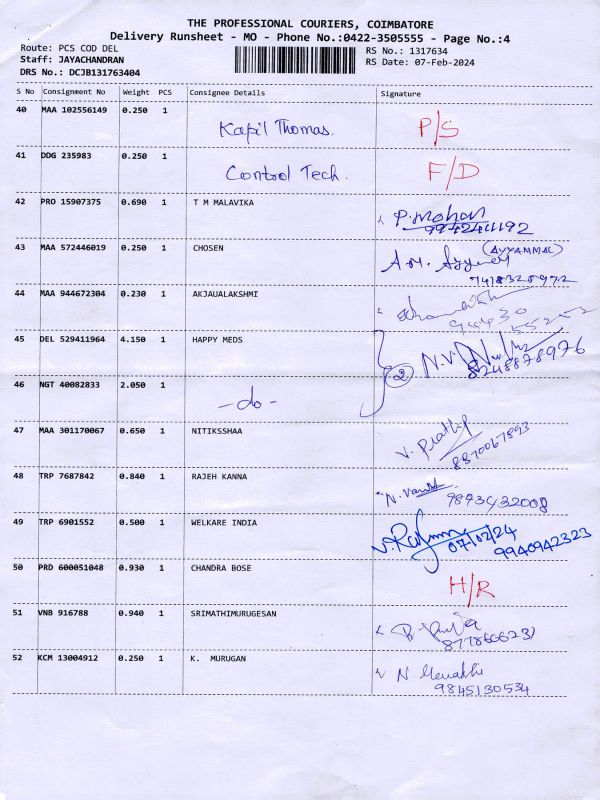 THE PROFESSIONAL COURIERS, COIMBATORE
Delivery Runsheet - MO - Phone No.:0422-3505555 - Page No.:4
Route: PCS COD DEL
RS No.: 1317634
Staff: JAYACHANDRAN
RS Date: 07-Feb-2024
DRS No.: DCJB131763404
S No Consignment No Weight PCS Consignee Details Signature
40 MAA 102556149 0.250 1 Kapil Thomas. P/S
41 DDG 235983 0.250 1 Control Tech. F/D
42 PRO 15907375 0.690 1 T M MALAVIKA P. mohan
9942441192
43 MAA 572446019 0.250 1 CHOSEN (AYYAMMAL)
7418328972
44 MAA 944672304 0.230 1 AKJAUALAKSHMI
94430
55252
45 DEL 529411964 4.150 1 HAPPY MEDS
2 N.V 8248878976
46 NGT 40082833 2.050 1 -do-
47 MAA 301170067 0.650 1 NITIKSSHAA V. Prathip
8870067893
48 TRP 7687842 0.840 1 RAJEH KANNA
9893432008
49 TRP 6901552 0.500 1 WELKARE INDIA 07/02/24
9940942323
50 PRD 600051048 0.930 1 CHANDRA BOSE H/R
51 VNB 916788 0.940 1 SRIMATHIMURUGESAN
8778606231
52 KCM 13004912 0.250 1 K. MURUGAN N.
9845130534